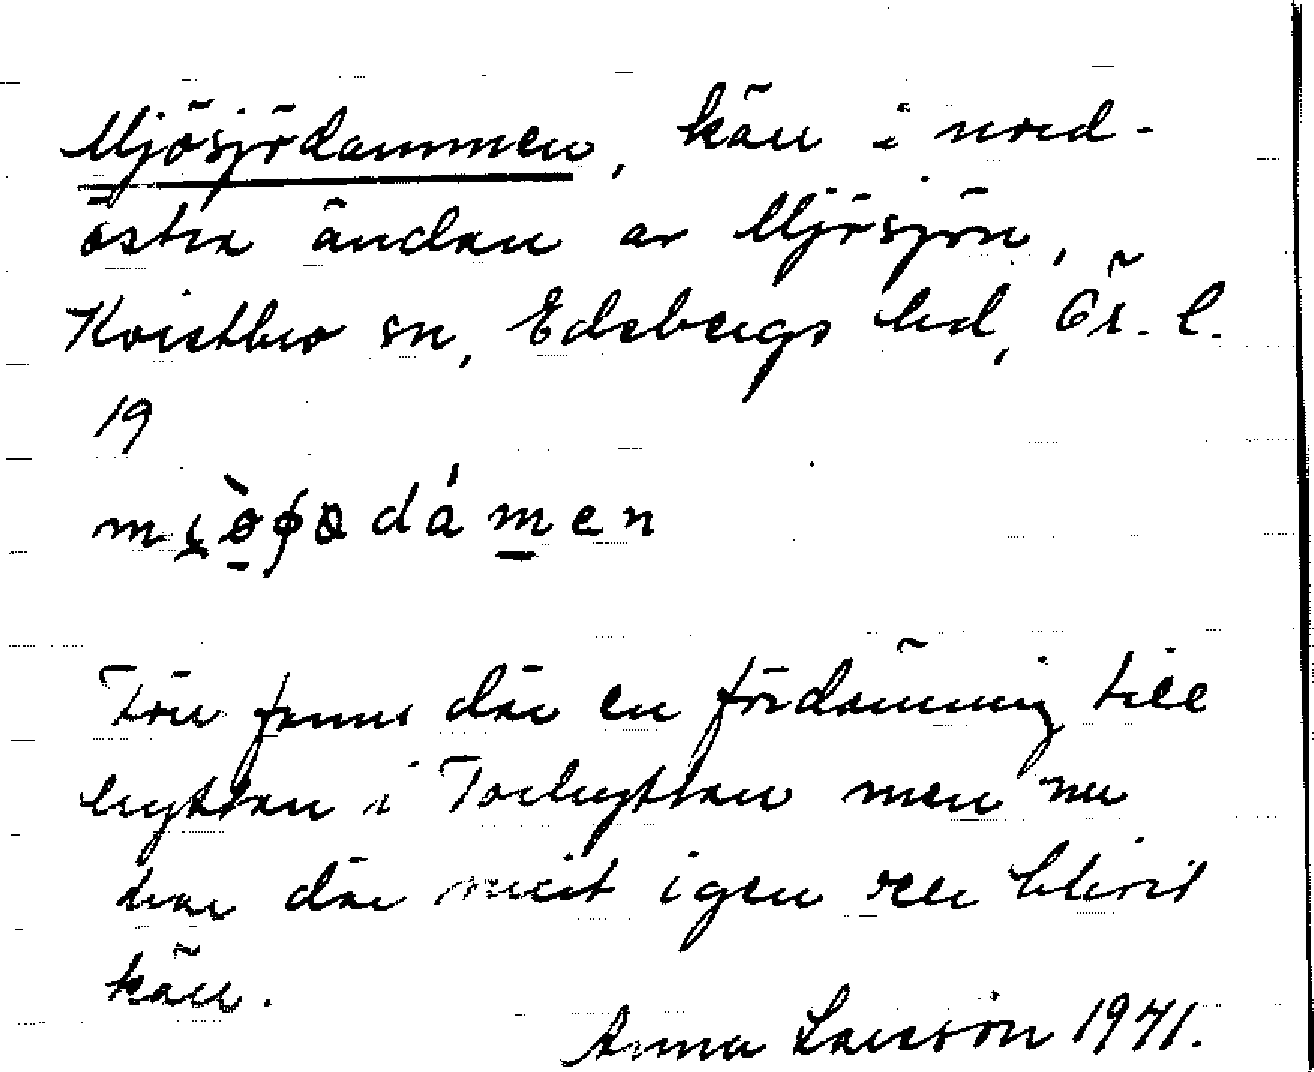 Mjösjödammen, kärr i nord-
östra ändan av Mjösjön,
Kvistbro sn, Edsbergs hd, Ör. l.
19
dámen
Förr fanns där en fördämning till
hyttan i Torhyttan men nu
har där växt igen och blivit
kärr.
Anna Larsson 1941.